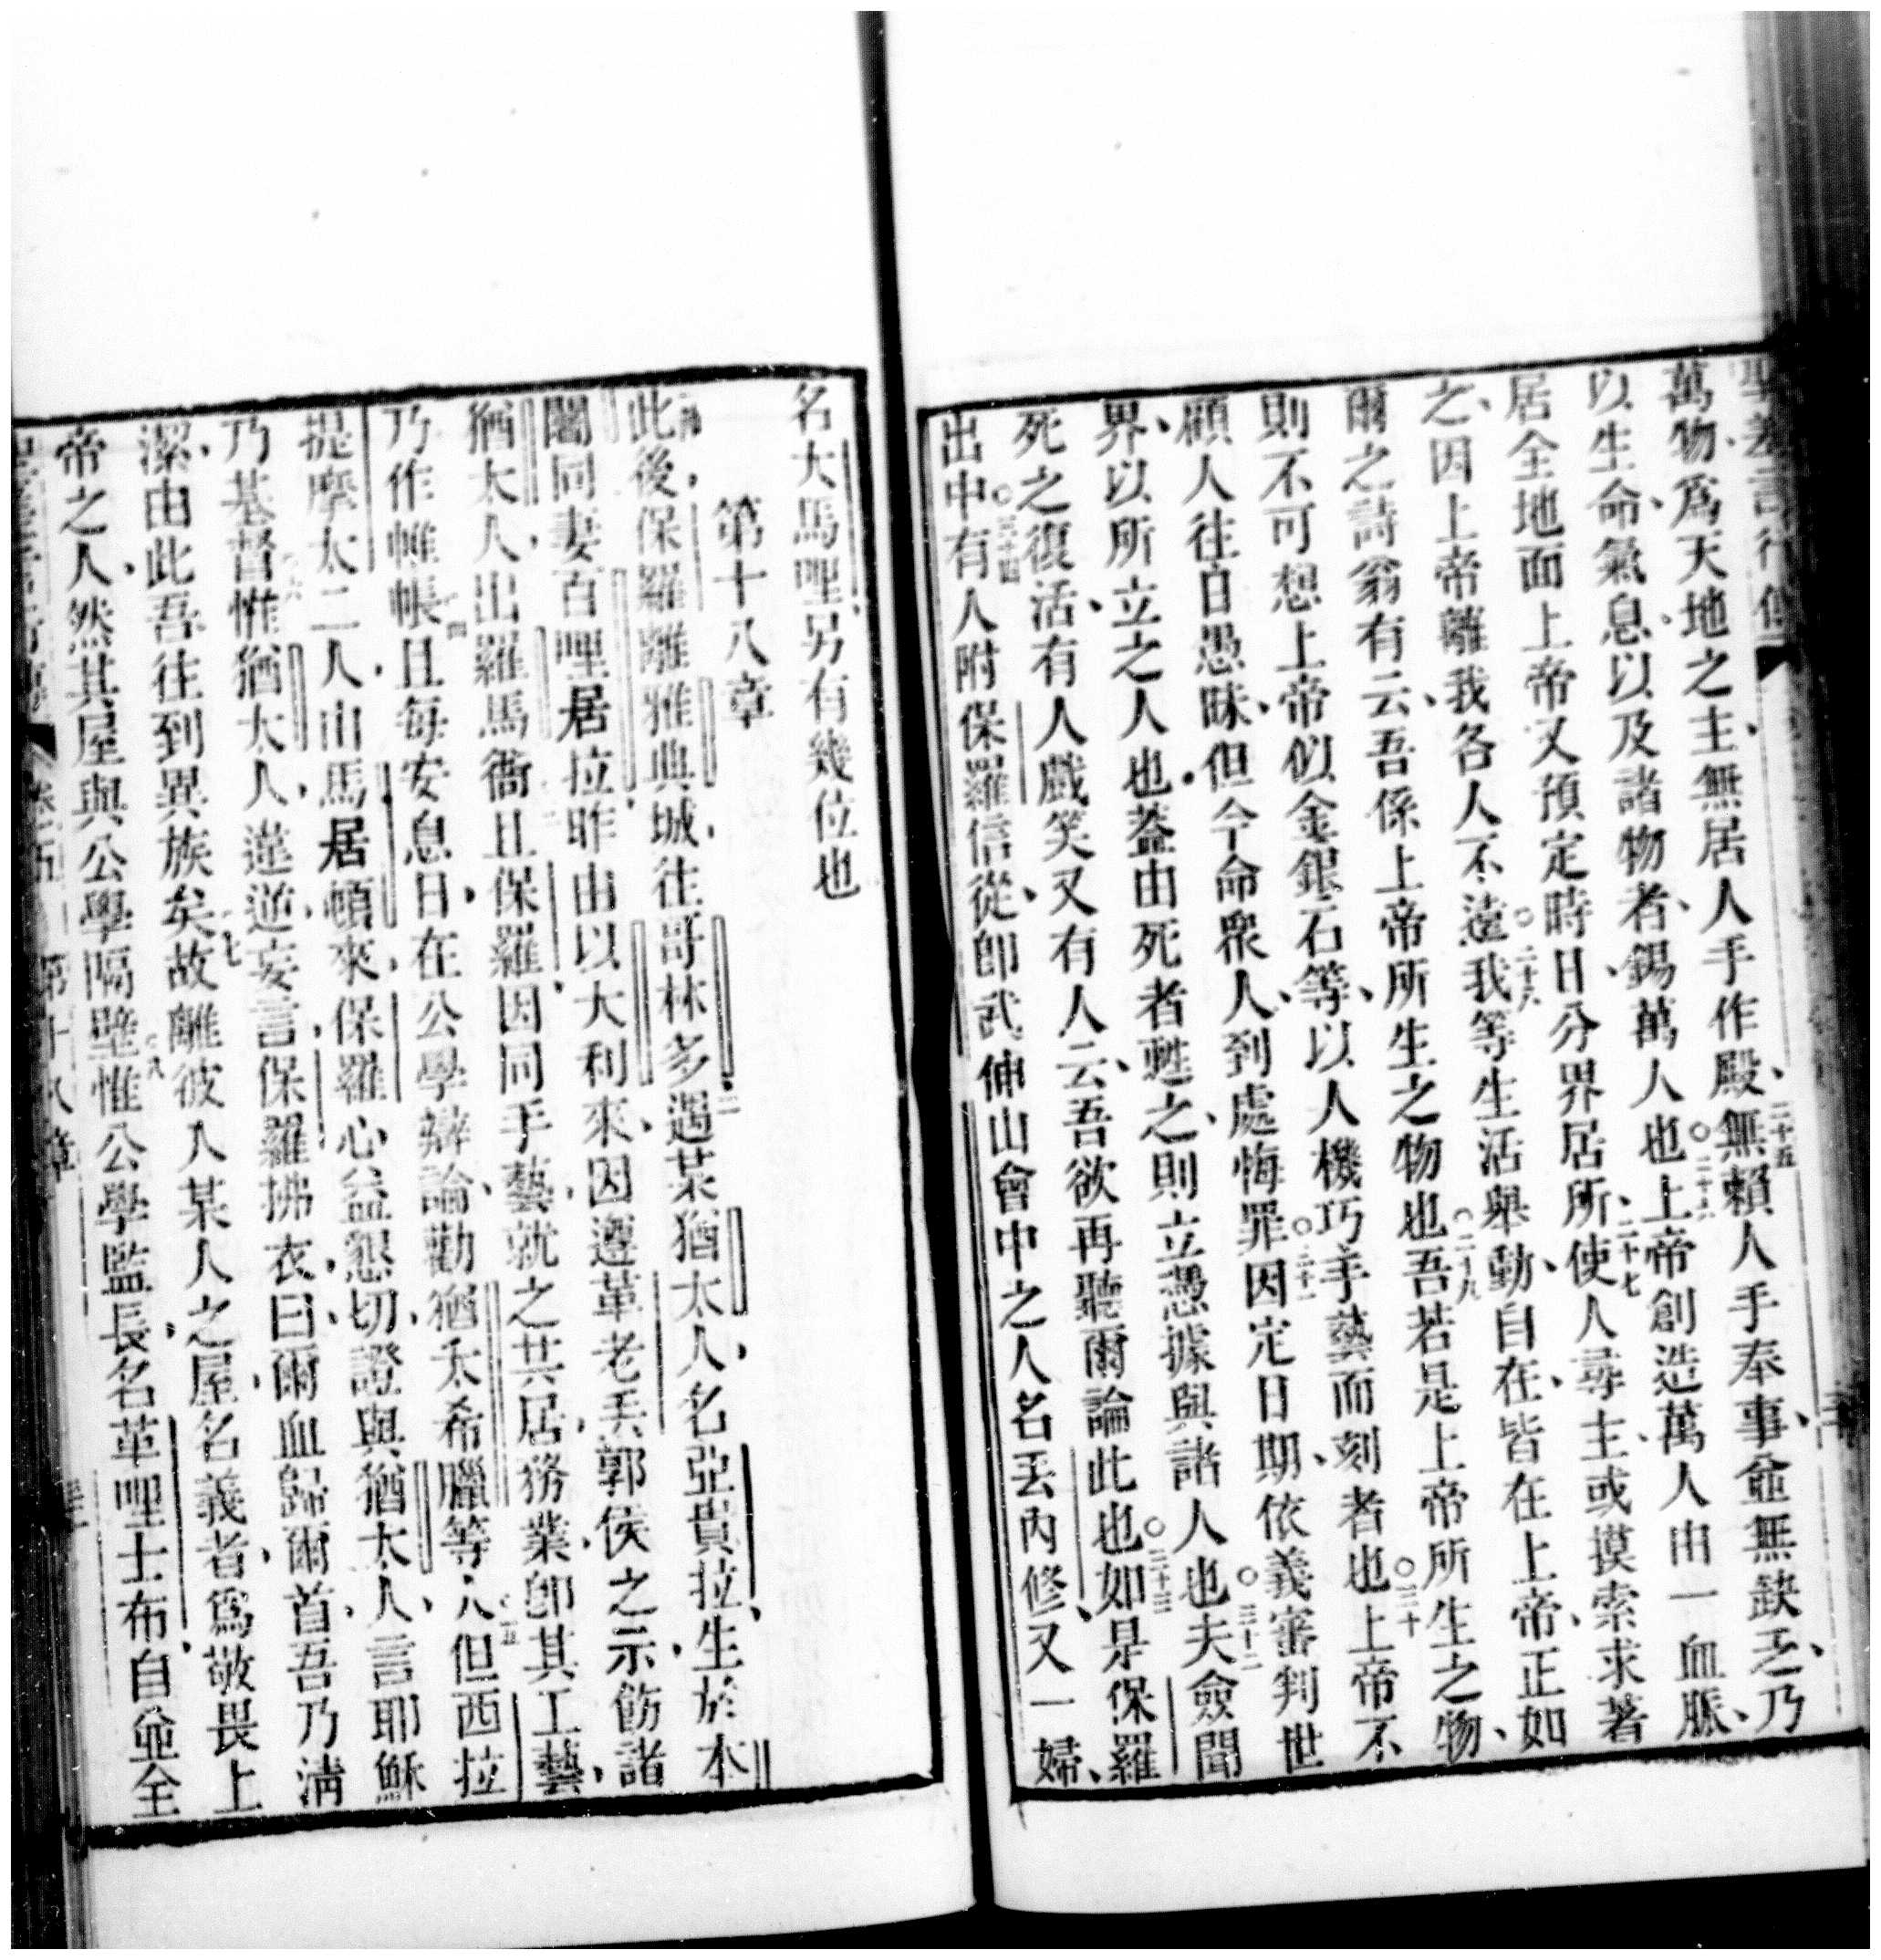 聖差言行傳
萬物、爲天地之主、無居人手作殿、二十五無賴人手奉事、並無缺乏、乃
以生命、氣息、以及諸物者、錫萬人也○二十六上帝創造萬人由一血脈、
居全地面上帝又預定時日、分界居所、二十七使人尋主、或摸索求著
之、因上帝離我各人不遠○二十八我等生活舉動、自在、皆在上帝、正如
爾之詩翁有云、吾係上帝所生之物也○二十九吾若是上帝所生之物、
則不可想上帝似金銀石等、以人機巧手藝而刻者也○三十上帝不
顧人往日愚昧、但今命衆人、到處悔罪○三十一因定日期、依義審判世
界、以所立之人也。葢由死者甦之、則立憑據與諸人也○三十二夫僉聞
死之復活、有人戲笑又有人云、吾欲再聽爾論此也○三十三如是保羅
出中○三十四有人附保羅信從、卽武伸山會中之人名丟內修、又一婦、
名大馬哩、另有幾位也
第十八章
此後、保羅離雅典城、往哥林多、二遇某猶太人、名亞貴拉、生於本
闍同妻百哩居拉、昨由以大利來、因遵革老丟郭侯之示飭諸
猶太人、出羅馬、三衙且保羅因同手藝、就之共居、務業、卽其工藝、
乃作帷帳、四且每安息日、在公學辯論、勸猶太希臘等人○五但西拉
提摩太二人、由馬居頓來、保羅心益懇切、證與猶太人、言耶穌
乃基督○六惟猶太人、違逆、妄言、保羅拂衣、曰、爾血歸爾首、吾乃淸
潔、由此吾往到異族矣○七故離彼入某人之屋、名義者、爲敬畏上
帝之人、然其屋與公學隔壁○八惟公學監長、名革哩士布、自並全
聖差言行傳 卷五 第十八章